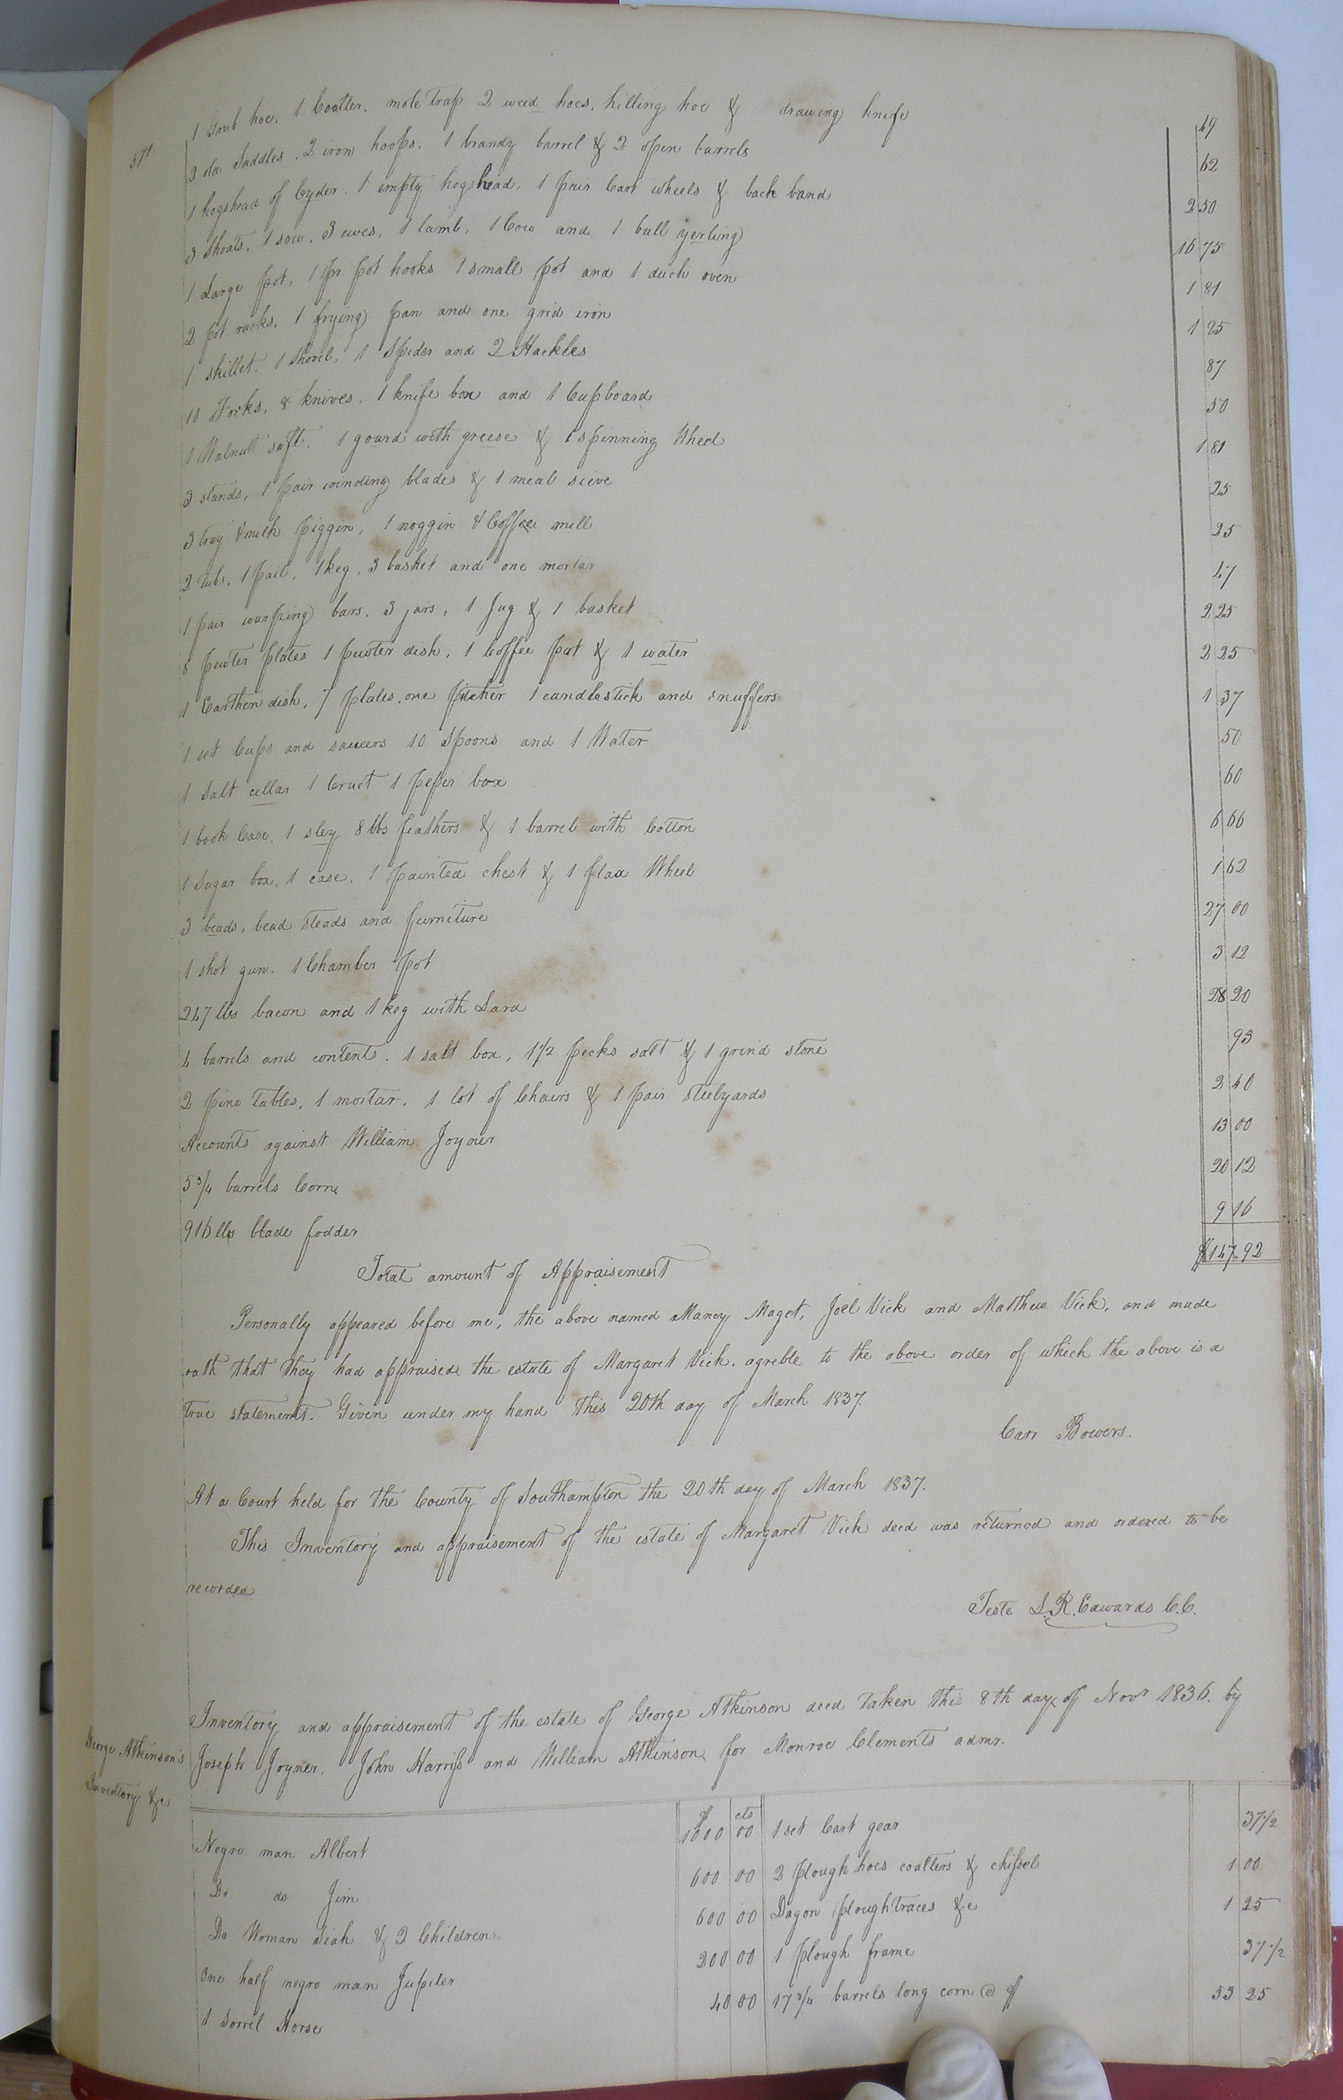 571
1 Grub hoe, 1 Coatter, mole trap 2 weed hoes, hilling hoe & drawing knife 49
2 old Saddles. 2 iron hoops. 1 brandy barrel & 2 open barrels 62
1 hogshead of Cyder. 1 empty hogshead, 1 pair Cart wheels & back band 2 50
3 Shoats, 1 sow. 3 ewes, 1 lamb. 1 Cow and 1 bull yerling 16 75
1 Large pot, 1 pr pot hooks 1 small pot and 1 duch oven 1 81
2 pot racks, 1 frying pan and one grid iron 1 25
1 skillet. 1 Shovel, 1 Spider and 2 Hackles 87
10 Forks, 8 knives, 1 knife box and 1 Cupboard 50
1 Walnutt saft. 1 gourd with greese & 1 spinning Wheel 1 81
3 stands, 1 pair winding blades & 1 meal sieve 25
3 tray & milk piggin, 1 noggin & Coffee mill 25
2 tubs, 1 pail, 1 keg, 3 basket and one mortar 47
1 pair warping bars. 3 jars, 1 Jug & 1 basket 2 25
8 pewter plates 1 pewter dish, 1 Coffee pot & 1 water 2 25
1 Earthen dish, 7 plates, one pitcher 1 candlestick and snuffers 1 37
1 set Cups and saucers 10 Spoons and 1 Water 50
1 Salt cellar 1 Cruet 1 peper box 60
1 book Case, 1 sley 8 lbs feathers & 1 barrel with Cotton 6 66
1 Sugar box, 1 case. 1 painted chest & 1 flax Wheel 1 62
3 beads, bead steads and furneture 27 00
1 shot gun. 1 Chamber pot 3 12
247 lbs bacon and 1 keg with Lard 28 20
4 barrels and contents. 1 salt box, 1 1/2 pecks salt & 1 grind stone 93
2 pine tables, 1 mortar. 1 lot of Chairs & 1 pair Steelyards 2 40
Accounts against William Joyner 13 00
5 3/4 barrels Corn 20 12
916 lbs blade fodder 9 16
Total amount of Appraisement $147.92
Personally appeared before me, the above named Maney Maget, Joel Vick and Matthew Vick, and made
oath that they had appraised the estate of Margaret Vick. agreble to the above order of which the above is a
true statement. Given under my hand this 20th day of March 1837.
Carr Bowers.
At a Court held for the County of Southampton the 20th day of March 1837.
This Inventory and appraisement of the estate of Margaret Vick decd was returned and ordered to be
recorded
Teste L. R. Edwards C.C.
George Atkinson's
Inventory &c
Inventory and appraisement of the estate of George Atkinson decd taken this 8th day of Novr 1836. by
Joseph Joyner. John Harriss and William Atkinson for Monroe Clements admr.
$ cts
Negro man Albert 1000 00 1 set Cart gear 37 1/2
Do do Jim 600 00 2 plough hoes coalters & chissel 1 00
Do Woman Siah & 2 Children. 600 00 Dagon plough traces &c 1 25
One half negro man Jupiter 200 00 1 plough frame 37 1/2
1 Sorrel Horse 40 00 17 3/4 barrels long corn @ $ 53 25